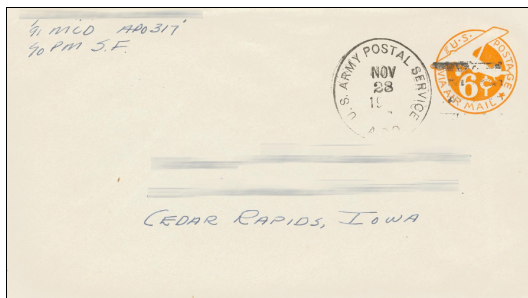 % MCD APO 317
% PM S.F.
U.S. ARMY POSTAL SERVICE
NOV
28
19
U.S. POSTAGE
6¢
VIA AIR MAIL
CEDAR RAPIDS, IOWA